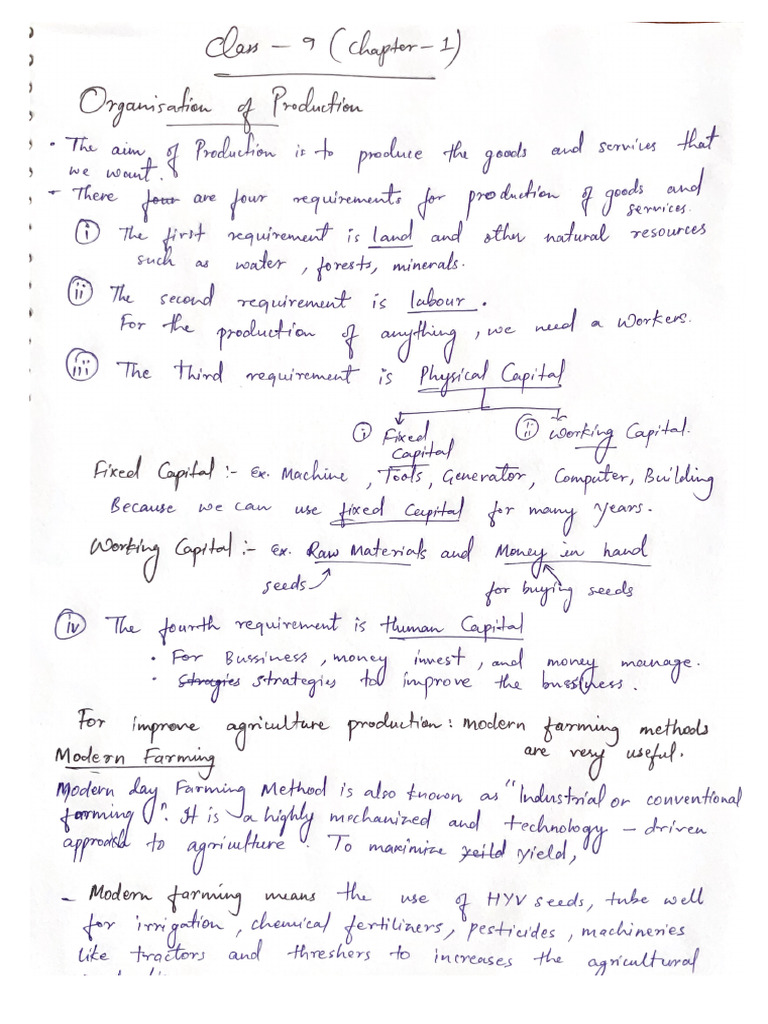 Class - 9 (Chapter-1)
Organisation of Production
• The aim of Production is to produce the goods and services that
we want.
- There four are four requirements for production of goods and
services.
(i) The first requirement is land and other natural resources
such as water, forests, minerals.
(ii) The second requirement is labour.
For the production of anything, we need a workers.
(iii) The third requirement is Physical Capital
(i) Fixed Capital (ii) Working Capital.
Fixed Capital :- Ex. Machine, Tools, Generator, Computer, Building
Because we can use fixed Capital for many years.
Working Capital :- Ex. Raw Materials and Money in hand
seeds for buying seeds
(iv) The fourth requirement is Human Capital
• For Bussiness, money invest, and money manage.
• Stragies strategies to improve the bussiness.
For improve agriculture production: modern farming methods
are very useful.
Modern Farming
Modern day Farming Method is also known as "Industrial or conventional
farming". It is a highly mechanized and technology - driven
approach to agriculture. To maximize yeild yield,
- Modern farming means the use of HYV seeds, tube well
for irrigation, chemical fertilizers, pesticides, machineries
like tractors and threshers to increases the agricultural